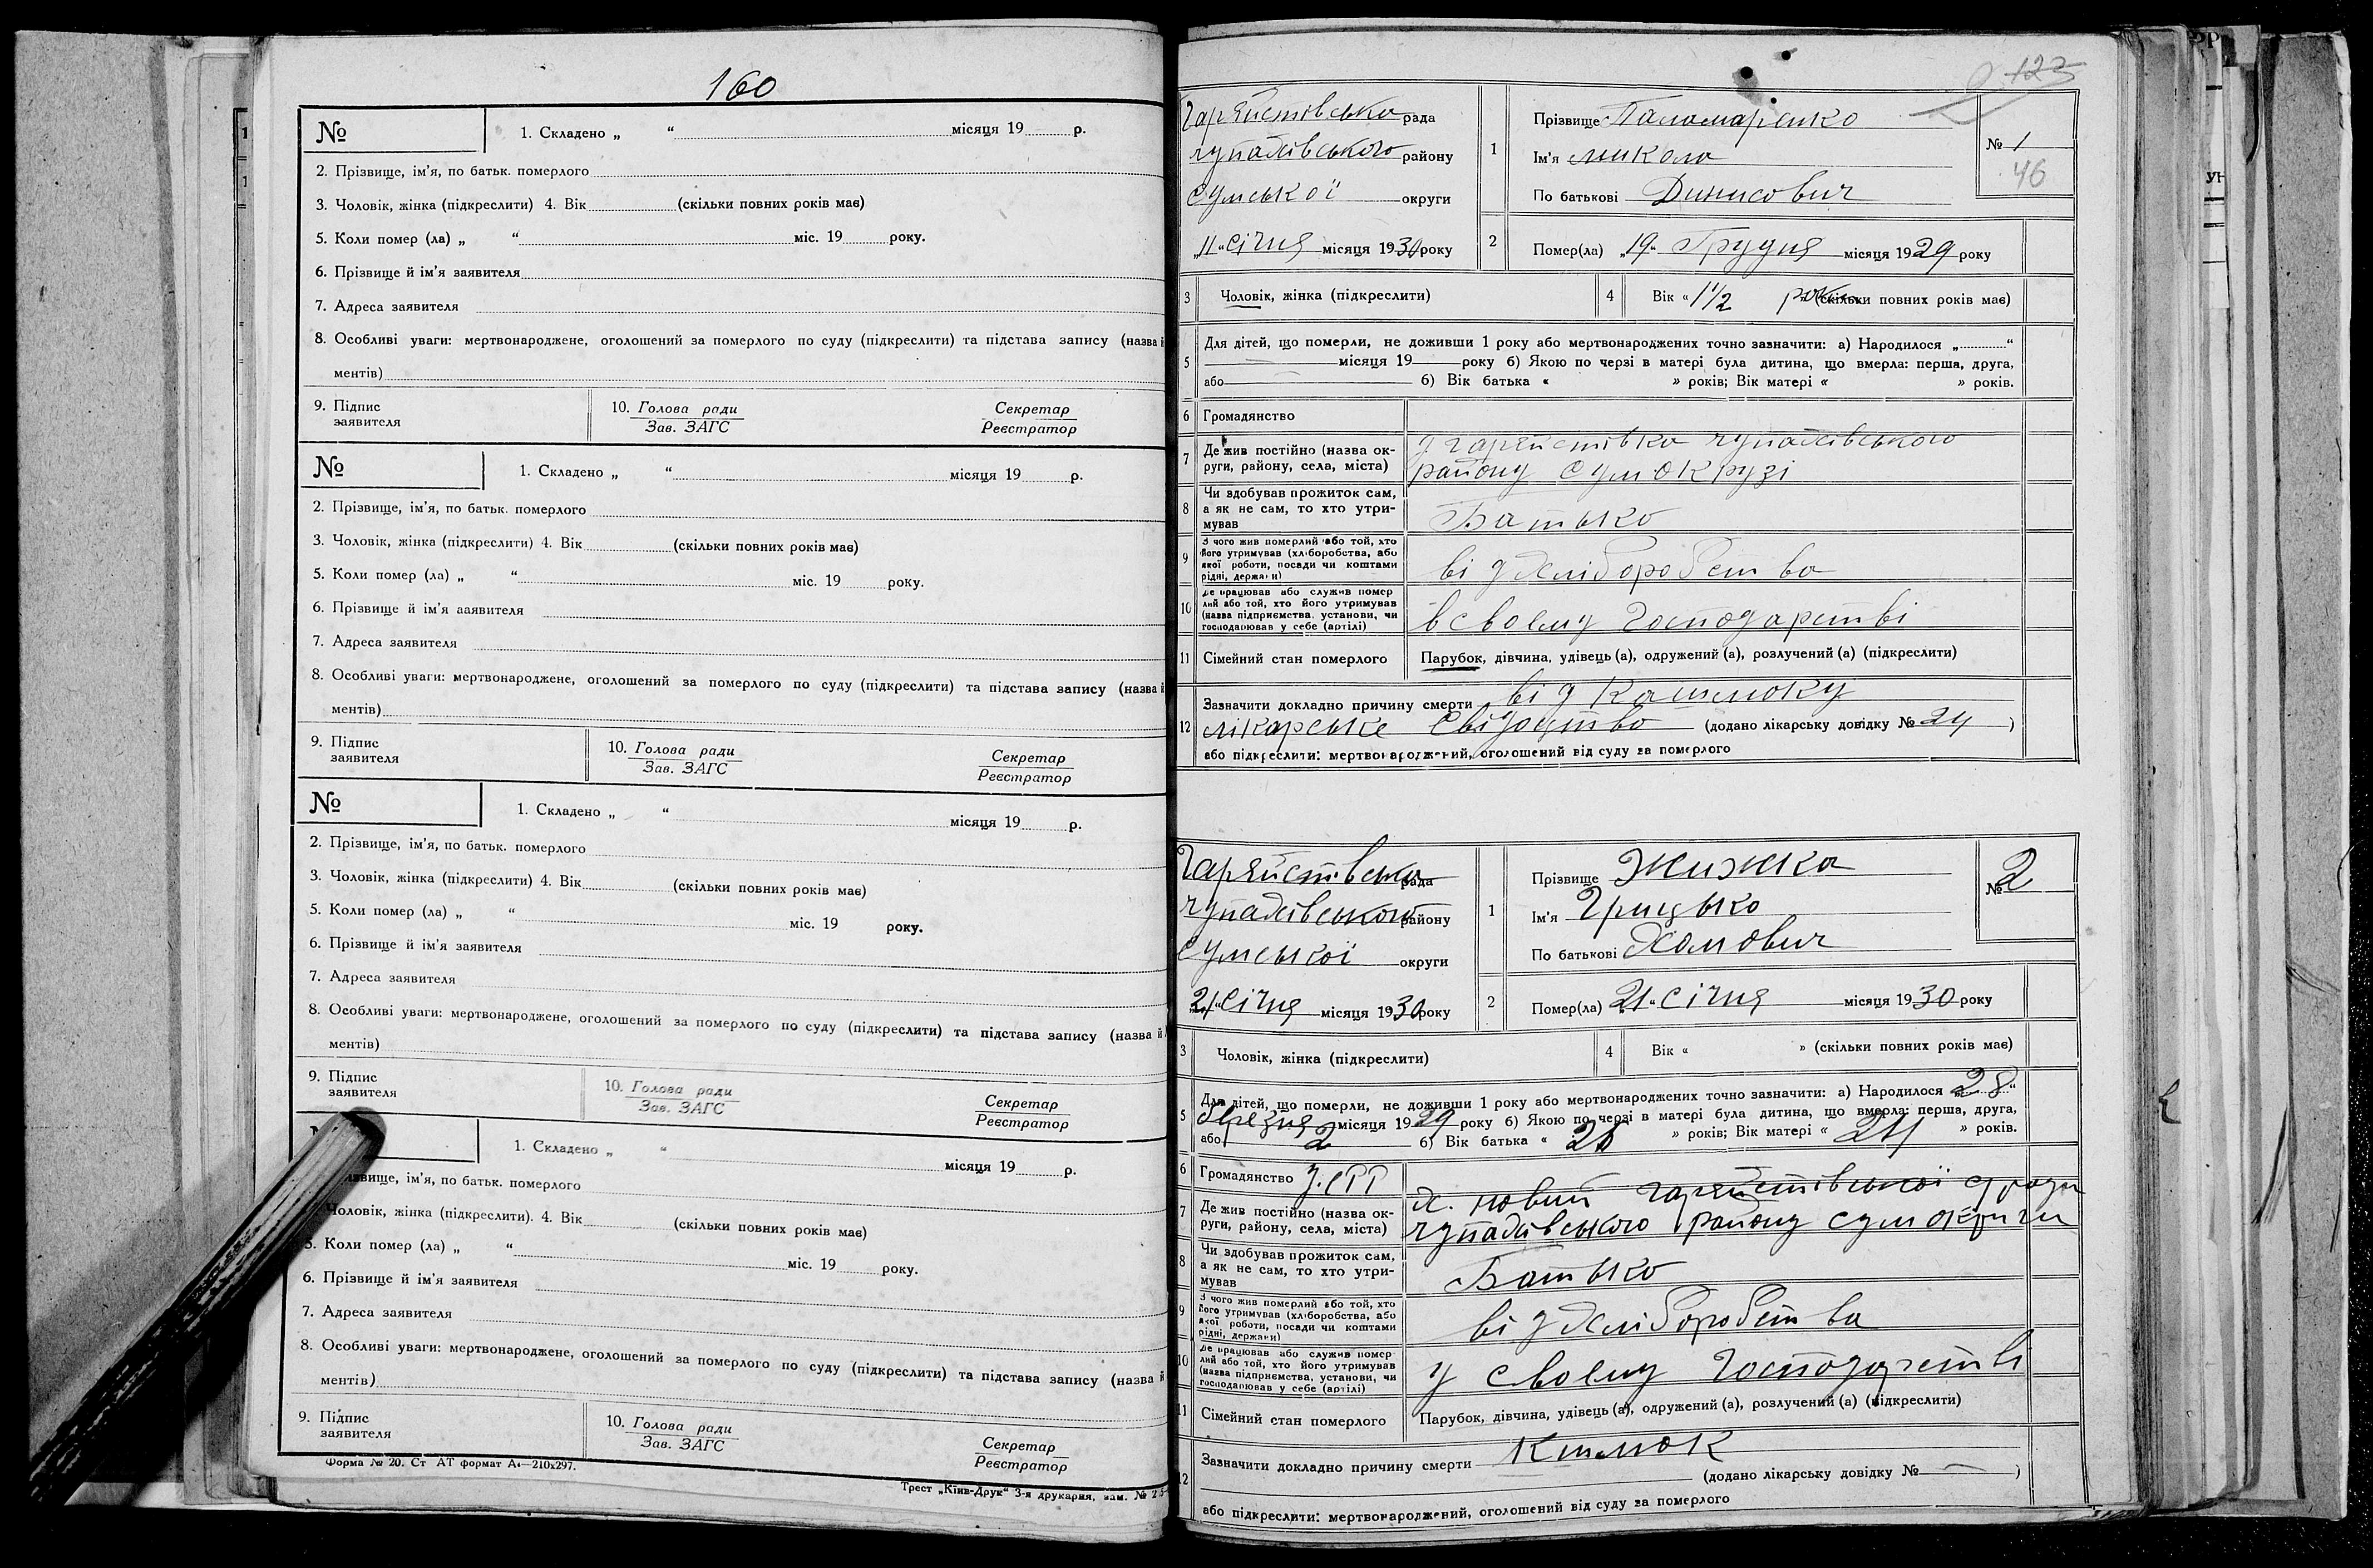 160
№
1. Складено „ “ місяця 19 р.
2. Прізвище, ім'я, по батьк. померлого
3. Чоловік, жінка (підкреслити) 4. Вік (скільки повних років має)
5. Коли помер (ла) „ “ міс. 19 року.
6. Прізвище й ім'я заявителя
7. Адреса заявителя
8. Особливі уваги: мертвонароджене, оголошений за померлого по суду (підкреслити) та підстава запису (назва й
ментів)
9. Підпис
заявителя
10. Голова ради
Зав. ЗАГС
Секретар
Реєстратор
№
1. Складено „ “ місяця 19 р.
2. Прізвище, ім'я, по батьк. померлого
3. Чоловік, жінка (підкреслити) 4. Вік (скільки повних років має)
5. Коли помер (ла) „ “ міс. 19 року.
6. Прізвище й ім'я заявителя
7. Адреса заявителя
8. Особливі уваги: мертвонароджене, оголошений за померлого по суду (підкреслити) та підстава запису (назва й
ментів)
9. Підпис
заявителя
10. Голова ради
Зав. ЗАГС
Секретар
Реєстратор
№
1. Складено „ “ місяця 19 р.
2. Прізвище, ім'я, по батьк. померлого
3. Чоловік, жінка (підкреслити) 4. Вік (скільки повних років має)
5. Коли помер (ла) „ “ міс. 19 року.
6. Прізвище й ім'я заявителя
7. Адреса заявителя
8. Особливі уваги: мертвонароджене, оголошений за померлого по суду (підкреслити) та підстава запису (назва й
ментів)
9. Підпис
заявителя
10. Голова ради
Зав. ЗАГС
Секретар
Реєстратор
1. Складено „ “ місяця 19 р.
ім'я, по батьк. померлого
Чоловік, жінка (підкреслити). 4. Вік (скільки повних років має)
5. Коли помер (ла) „ “ міс. 19 року.
6. Прізвище й ім'я заявителя
7. Адреса заявителя
8. Особливі уваги: мертвонароджене, оголошений за померлого по суду (підкреслити) та підстава запису (назва й
ментів)
9. Підпис
заявителя
10. Голова ради
Зав. ЗАГС
Секретар
Реєстратор
Форма № 20. Ст АТ формат А4—210х297.
Трест „Київ-Друк“ 3-я друкарня, зам. №
123
рада
Чупахівського району
Сумської округи
„11“ Січня місяця 1930 року
1
Прізвище Паламаренко
Ім'я Микола
По батькові Динисович
№ 1
46
2
Помер(ла) „19“ Грудня місяця 1929 року
3 Чоловік, жінка (підкреслити)
4 Вік « 1 1/2 роки » (скільки повних років має)
5 Для дітей, що померли, не доживши 1 року або мертвонароджених точно зазначити: а) Народилося „ “
місяця 19 року б) Якою по черзі в матері була дитина, що вмерла: перша, друга,
або б) Вік батька « » років; Вік матері « » років.
6 Громадянство
7 Де жив постійно (назва ок-
руги, району, села, міста)
Чупахівського
району Сумокрузі
8 Чи здобував прожиток сам,
а як не сам, то хто утри-
мував
Батько
9 З чого жив померлий або той, хто
його утримував (хліборобства, або
якої роботи, посади чи коштами
рідні, держави)
від хліборобства
10 Де працював або служив помер
лий або той, хто його утримував
(назва підприємства, установи, чи
господарював у себе (артілі)
в своєму господарстві
11 Сімейний стан померлого
Парубок, дівчина, удівець (а), одружений (а), розлучений (а) (підкреслити)
12 Зазначити докладно причину смерти від кашлюку
лікарське свідоцтво (додано лікарську довідку № 24 )
або підкреслити: мертвонароджений, оголошений від суду за померлого
рада
Чупахівського району
Сумської округи
„21“ Січня місяця 1930 року
1
Прізвище Жижка
Ім'я Грицько
По батькові Хомович
№ 2
2
Помер(ла) „21“ Січня місяця 1930 року
3 Чоловік, жінка (підкреслити)
4 Вік « » (скільки повних років має)
5 Для дітей, що померли, не доживши 1 року або мертвонароджених точно зазначити: а) Народилося „28“
березня місяця 1929 року б) Якою по черзі в матері була дитина, що вмерла: перша, друга,
або 2 б) Вік батька « 26 » років; Вік матері « 24 » років.
6 Громадянство У.СРР
7 Де жив постійно (назва ок-
руги, району, села, міста)
х. Новий
Чупахівського району Сумокруги
8 Чи здобував прожиток сам,
а як не сам, то хто утри-
мував
Батько
9 З чого жив померлий або той, хто
його утримував (хліборобства, або
якої роботи, посади чи коштами
рідні, держави)
від хліборобства
10 Де працював або служив помер
лий або той, хто його утримував
(назва підприємства, установи, чи
господарював у себе (артілі)
у своєму господарстві
11 Сімейний стан померлого
Парубок, дівчина, удівець (а), одружений (а), розлучений (а) (підкреслити)
12 Зазначити докладно причину смерти
(додано лікарську довідку № — )
або підкреслити: мертвонароджений, оголошений від суду за померлого